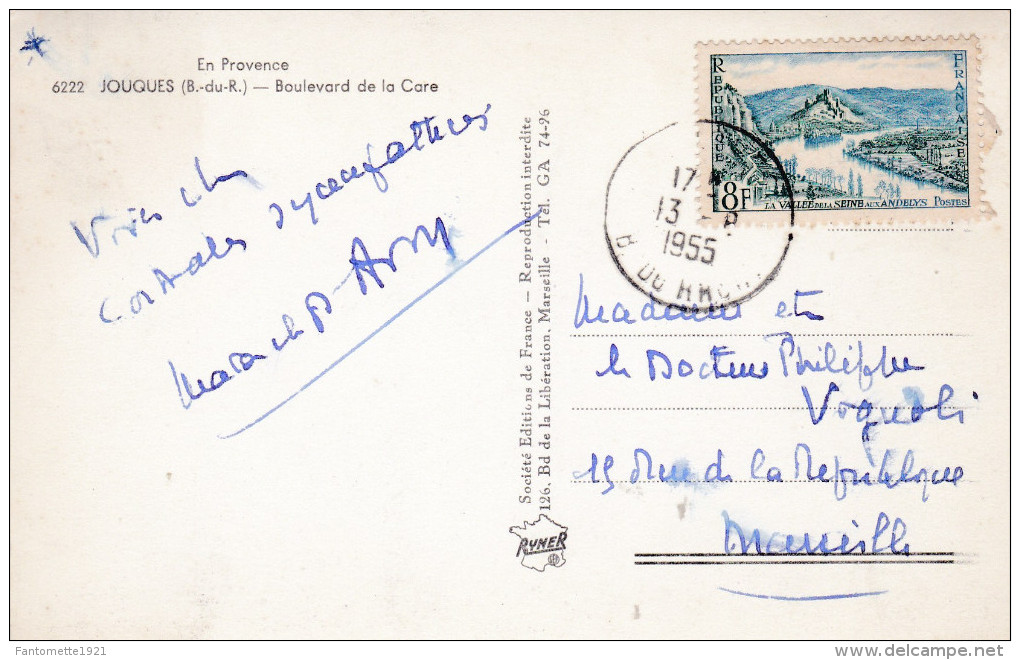 En Provence
6222 JOUQUES (B.-du-R.) — Boulevard de la Care
cordiales
Société Editions de France — Reproduction interdite
126, Bd de la Libération, Marseille - Tél. GA 74-96
RYNER
REPUBLIQUE
FRANÇAISE
8F
LA VALLEE DE LA SEINE AUX ANDELYS POSTES
17
13
1955
B. DU RHONE
Madame et
le Docteur Philippe
Vognoli
19 Rue de la République
Marseille
Fantomette1921